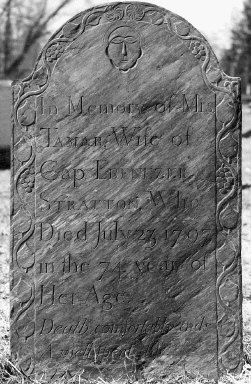 In Memory of Mrs
TAMAR, Wife of
Cap EBENEZER
STRATTON, Who
Died July 23, 1797
in the 74 year of
Her Age
Death